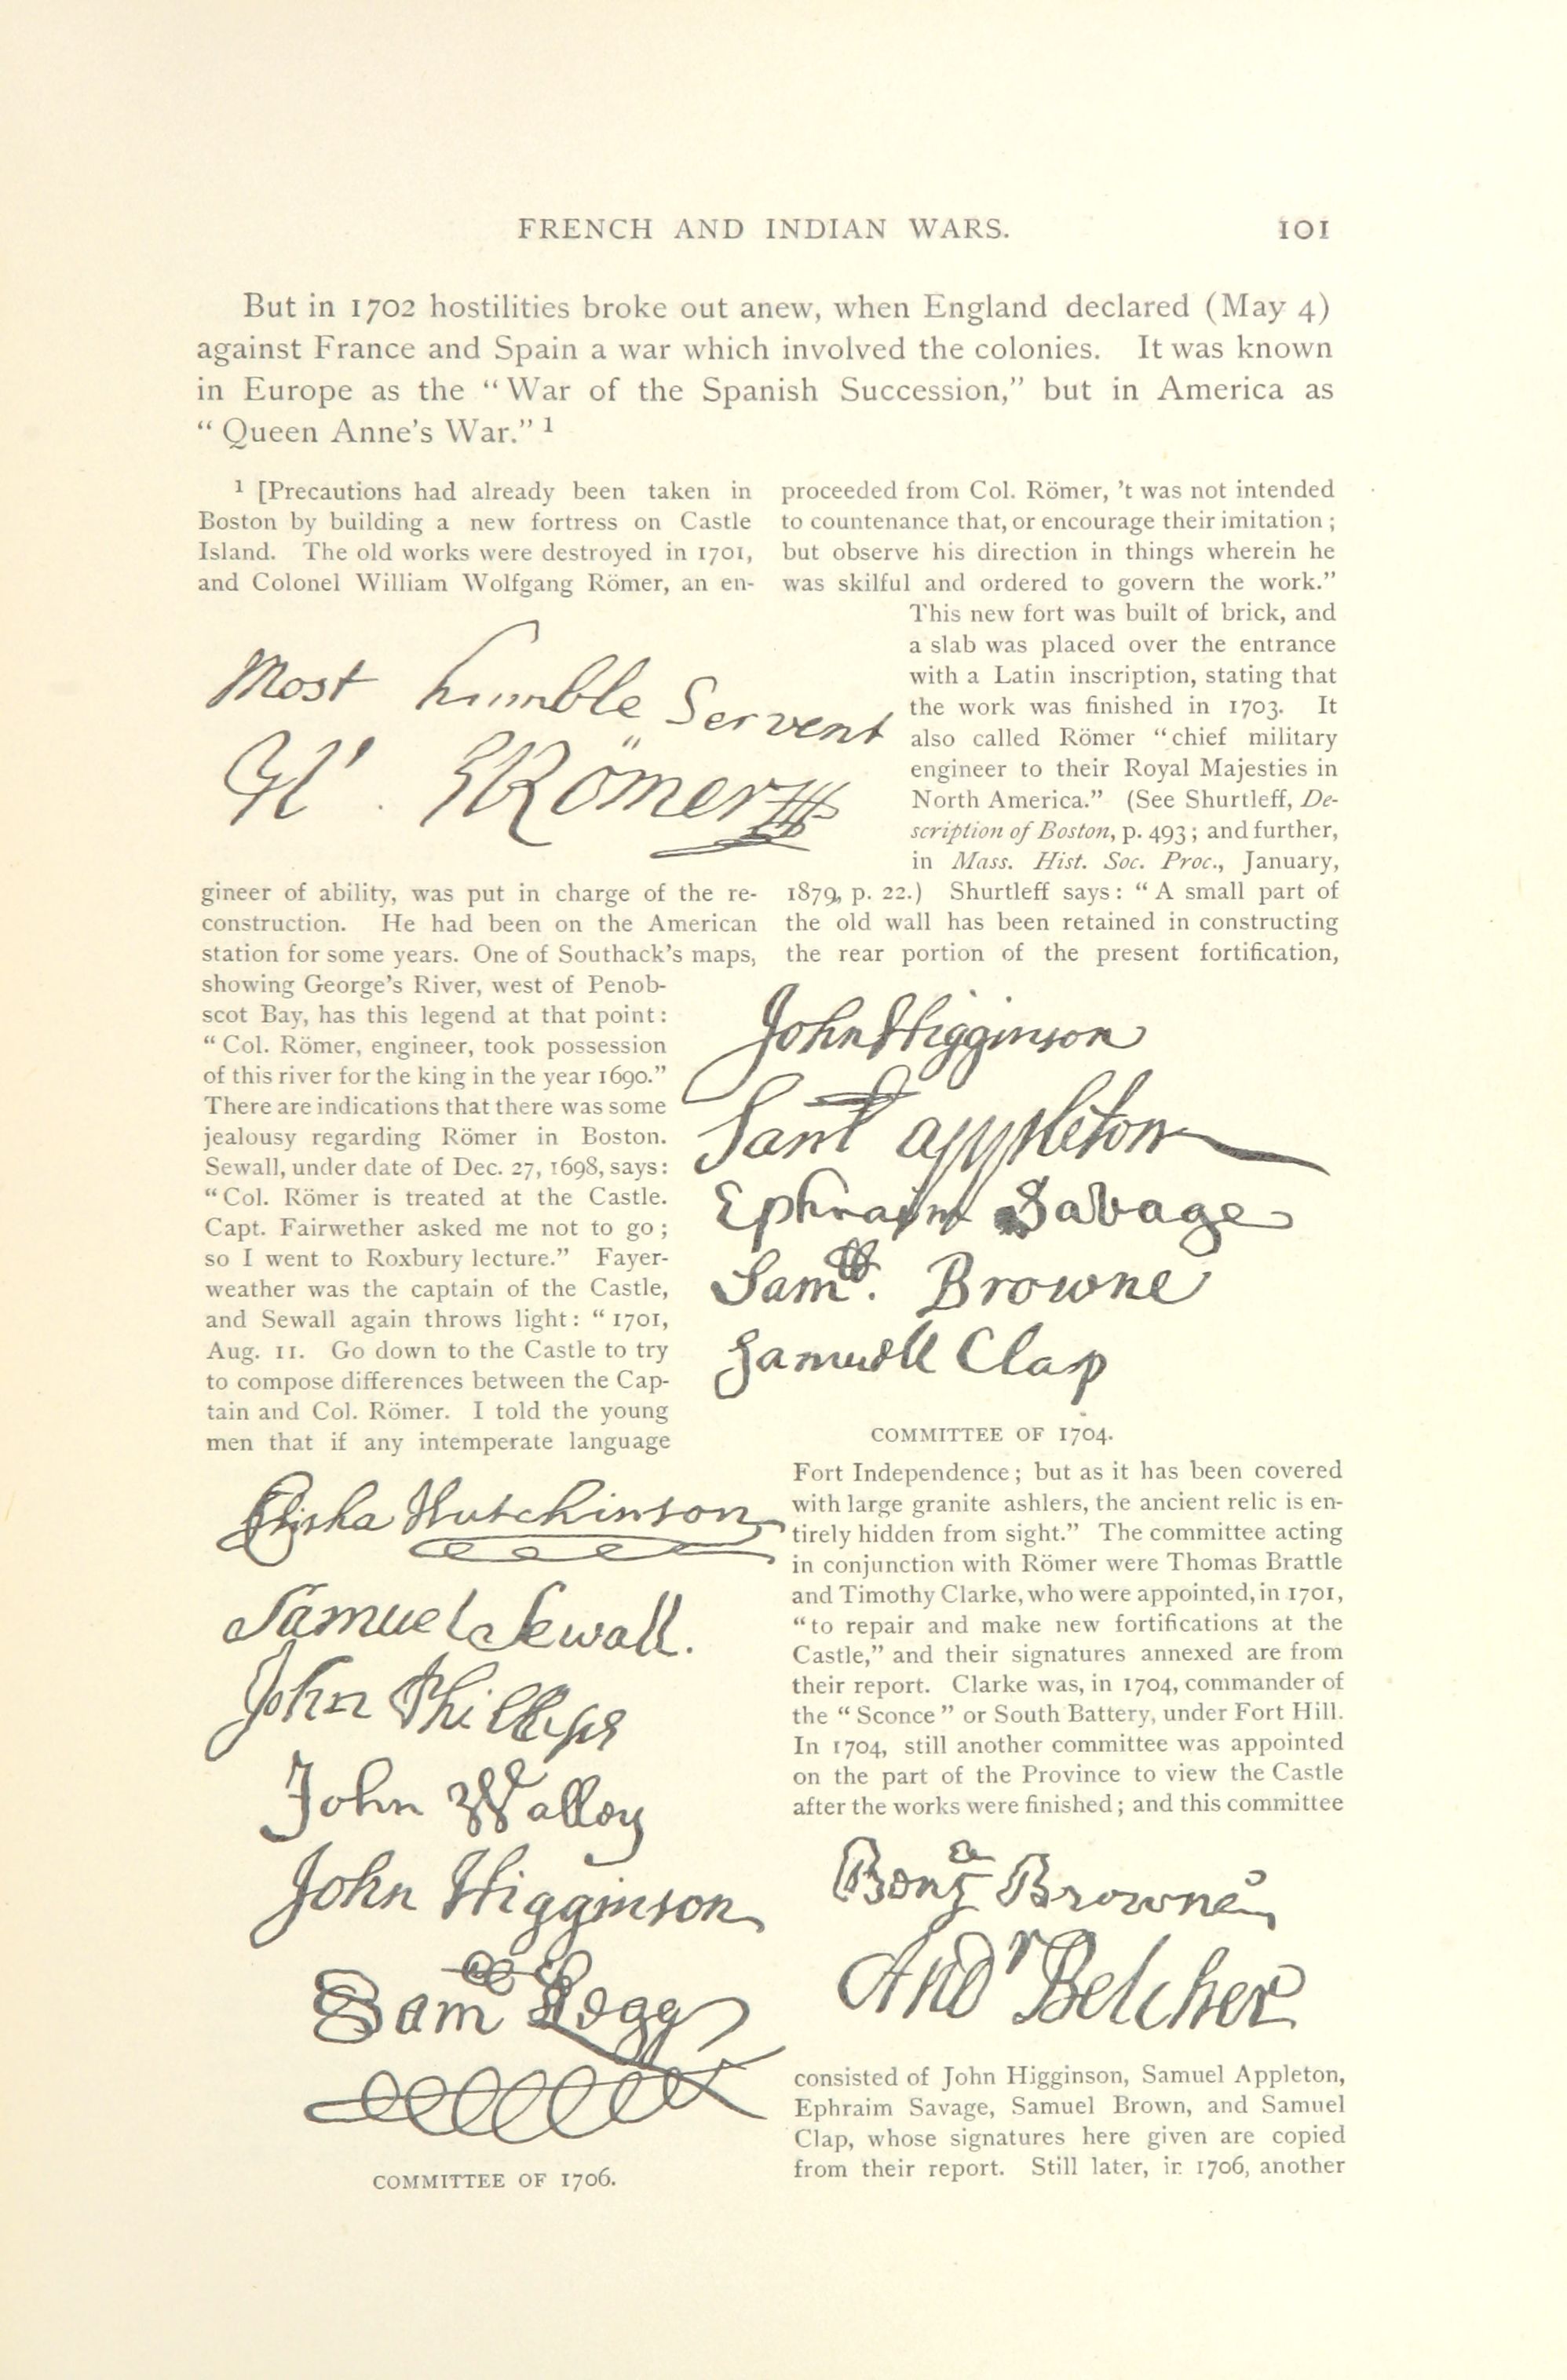 FRENCH AND INDIAN WARS. 101
But in 1702 hostilities broke out anew, when England declared (May 4)
against France and Spain a war which involved the colonies. It was known
in Europe as the “War of the Spanish Succession,” but in America as
“Queen Anne’s War.” 1
1 [Precautions had already been taken in
Boston by building a new fortress on Castle
Island. The old works were destroyed in 1701,
and Colonel William Wolfgang Römer, an en-
Most humble Servent
W. Römer
gineer of ability, was put in charge of the re-
construction. He had been on the American
station for some years. One of Southack’s maps,
showing George’s River, west of Penob-
scot Bay, has this legend at that point:
“Col. Römer, engineer, took possession
of this river for the king in the year 1690.”
There are indications that there was some
jealousy regarding Römer in Boston.
Sewall, under date of Dec. 27, 1698, says:
“Col. Römer is treated at the Castle.
Capt. Fairwether asked me not to go;
so I went to Roxbury lecture.” Fayer-
weather was the captain of the Castle,
and Sewall again throws light: “1701,
Aug. 11. Go down to the Castle to try
to compose differences between the Cap-
tain and Col. Römer. I told the young
men that if any intemperate language
Elisha Hutchinson
Samuel Sewall.
John Phillips
John Walley
John Higginson
Sam Legg
COMMITTEE OF 1706.
proceeded from Col. Römer, ’t was not intended
to countenance that, or encourage their imitation;
but observe his direction in things wherein he
was skilful and ordered to govern the work.”
This new fort was built of brick, and
a slab was placed over the entrance
with a Latin inscription, stating that
the work was finished in 1703. It
also called Römer “chief military
engineer to their Royal Majesties in
North America.” (See Shurtleff, De-
scription of Boston, p. 493; and further,
in Mass. Hist. Soc. Proc., January,
1879, p. 22.) Shurtleff says: “A small part of
the old wall has been retained in constructing
the rear portion of the present fortification,
John Higginson
Saml Appleton
Ephraim Savage
Samll. Browne
Samuell Clap
COMMITTEE OF 1704.
Fort Independence; but as it has been covered
with large granite ashlers, the ancient relic is en-
tirely hidden from sight.” The committee acting
in conjunction with Römer were Thomas Brattle
and Timothy Clarke, who were appointed, in 1701,
“to repair and make new fortifications at the
Castle,” and their signatures annexed are from
their report. Clarke was, in 1704, commander of
the “Sconce” or South Battery, under Fort Hill.
In 1704, still another committee was appointed
on the part of the Province to view the Castle
after the works were finished; and this committee
Benja Browne
Andr Belcher
consisted of John Higginson, Samuel Appleton,
Ephraim Savage, Samuel Brown, and Samuel
Clap, whose signatures here given are copied
from their report. Still later, in 1706, another